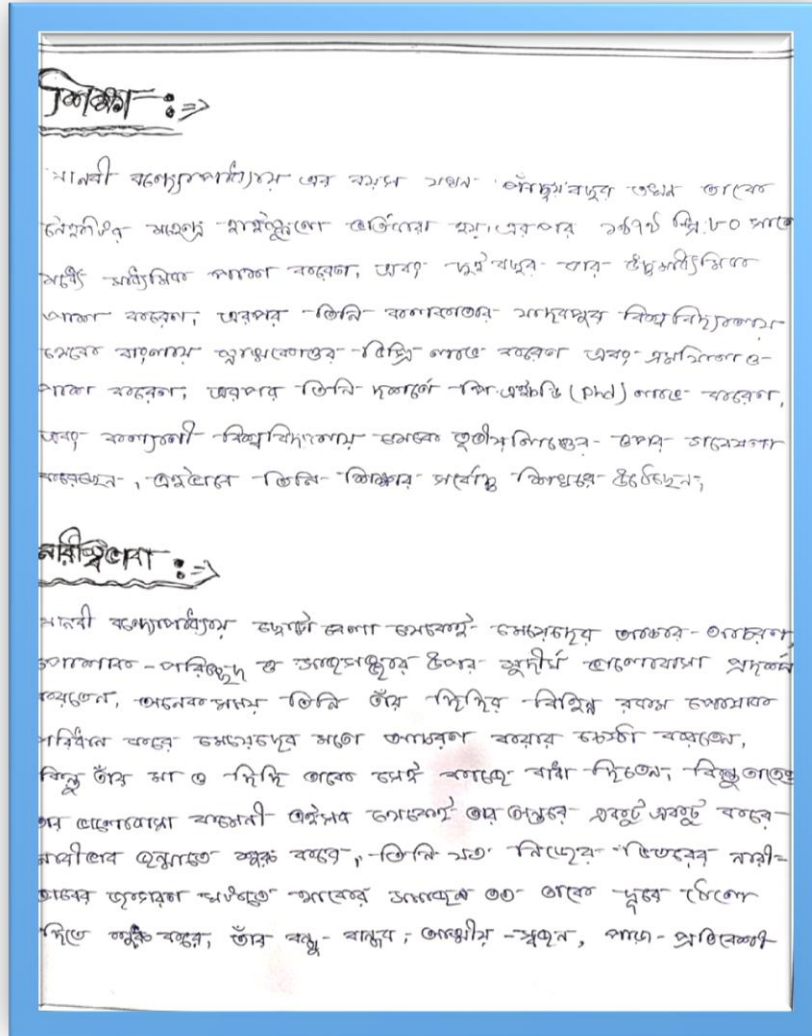 শিক্ষা :=>
মানবী বন্দ্যোপাধ্যায় এর বয়স যখন পাঁচ ছয় বছর তখন তাকে
মহেন্দ্র হাইস্কুলে ভর্তি করা হয়, এরপর ৮০ সালে
মধ্যে মাধ্যমিক পাশ করেন, এবং দুই বছর পার উচ্চমাধ্যমিক
পাশ করেন, এরপর তিনি কলকাতার যাদবপুর বিশ্ববিদ্যালয়
থেকে বাংলায় স্নাতকোত্তর ডিগ্রি লাভ করেন এবং এমফিল ও
পাশ করেন, এরপর তিনি পি.এইচডি (Phd) লাভ করেন,
এবং কল্যাণী বিশ্ববিদ্যালয় থেকে তৃতীয় লিঙ্গের উপর গবেষণা
করেছেন, এইভাবে তিনি শিক্ষার সর্বোচ্চ শিখরে উঠেছেন;
নারীস্বভাবা :=>
মানবী বন্দ্যোপাধ্যায় ছোটো বেলা থেকেই মেয়েদের আকার-আচরণ,
পোশাক-পরিচ্ছদ ও সাজসজ্জার উপর সুদীর্ঘ ভালোবাসা প্রদর্শন
করতেন, অনেক সময় তিনি তাঁর দিদির বিভিন্ন রকম পোষাক
পরিধান করে মেয়েদের মতো আচরণ করার চেষ্টা করতেন,
কিন্তু তাঁর মা ও দিদি তাকে সেই কাজে বাধা দিতেন; কিন্তু তাতেও
তার ভালোবাসা কমেনী এইসব থেকেই তার অন্তরে একটু একটু করে
নারীভাব জন্মাতে শুরু করে, তিনি যত নিজের ভিতরের নারী=
ভাবের জাগরণ ঘটাতে থাকেন তত তাকে দূরে ঠেলে
দিতে শুরু করে, তাঁর বন্ধু-বান্ধব, আত্মীয়-স্বজন, পাড়া-প্রতিবেশী